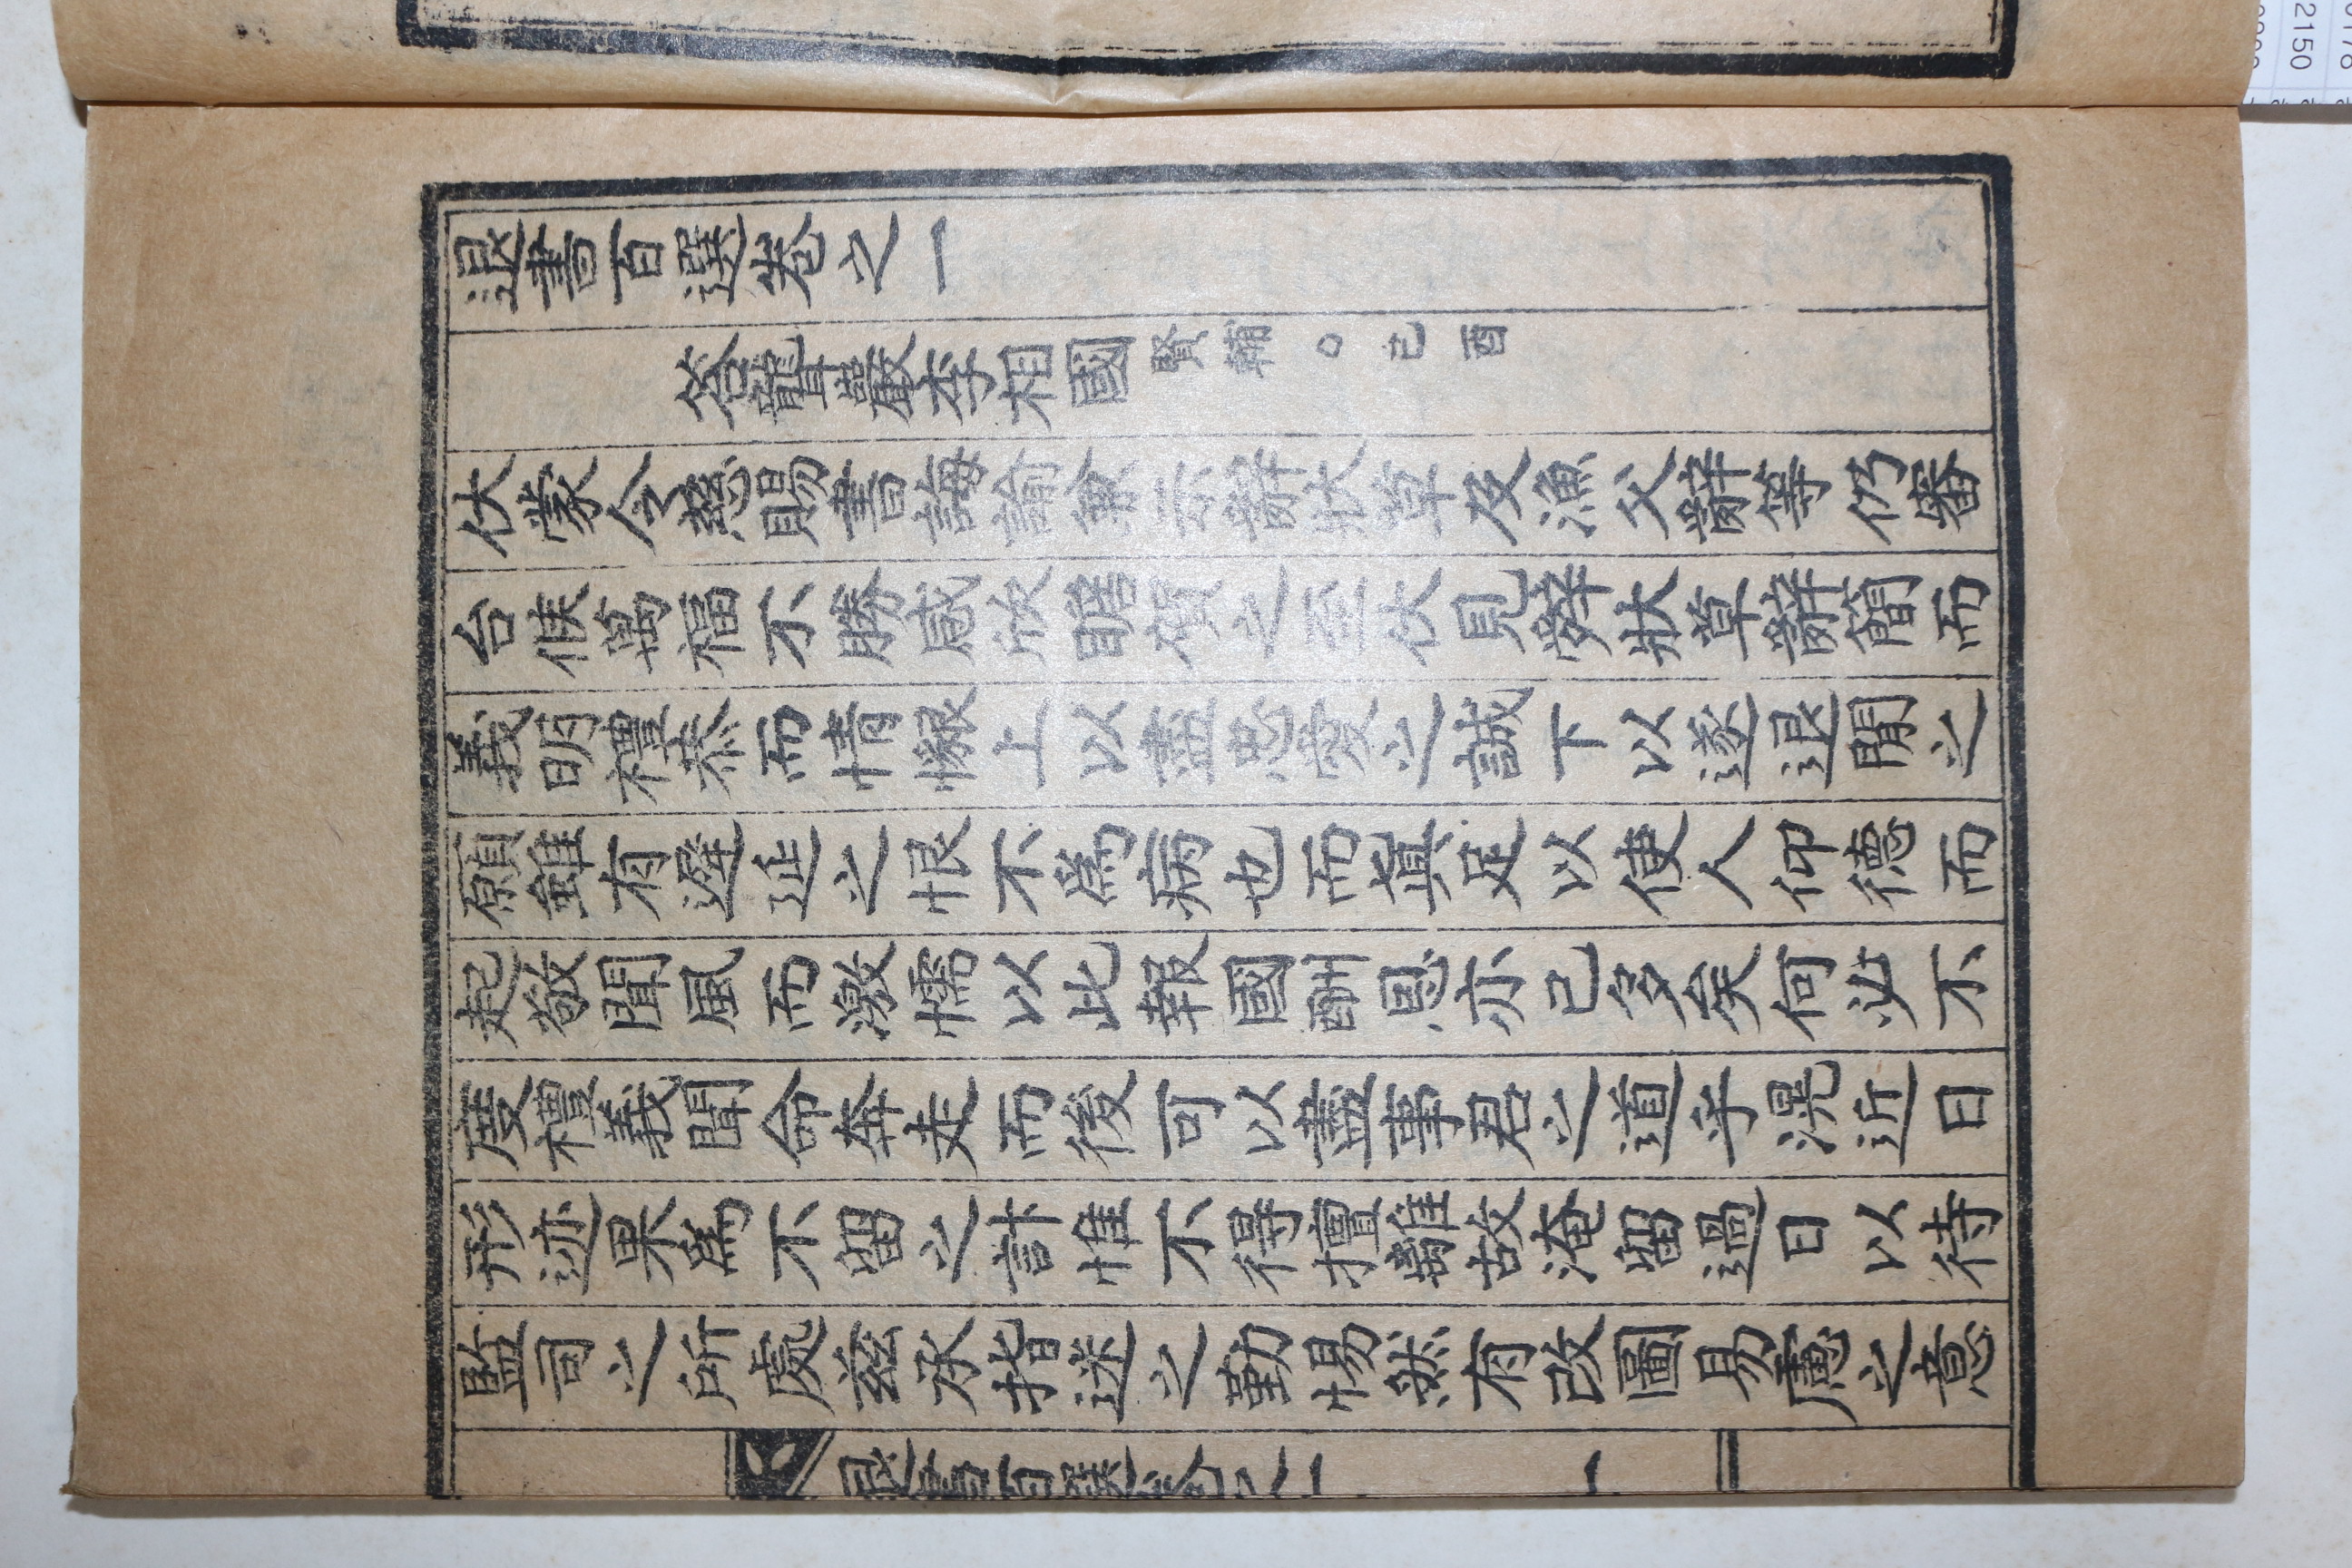 退書百選卷之一
答聾巖李相國賢輔○己酉
伏蒙令慈賜書誨諭兼示辭狀草及漁父辭等仍審
台候萬福不勝感欣瞻賀之至伏見辭狀草辭簡而
義明禮恭而情懇上以盡忠愛之誠下以遂退閒之
願雖有遲延之恨不爲病也而眞足以使人仰德而
起敬聞風而激懦以此報國酬恩亦已多矣何必不
度禮義聞命奔走而後可以盡事君之道乎滉近日
形迹果爲不留之計惟不得擅離故淹留過日以待
監司之所處茲承指迷之勤惕然有改圖易慮之意
退書百選卷之一
一
2150